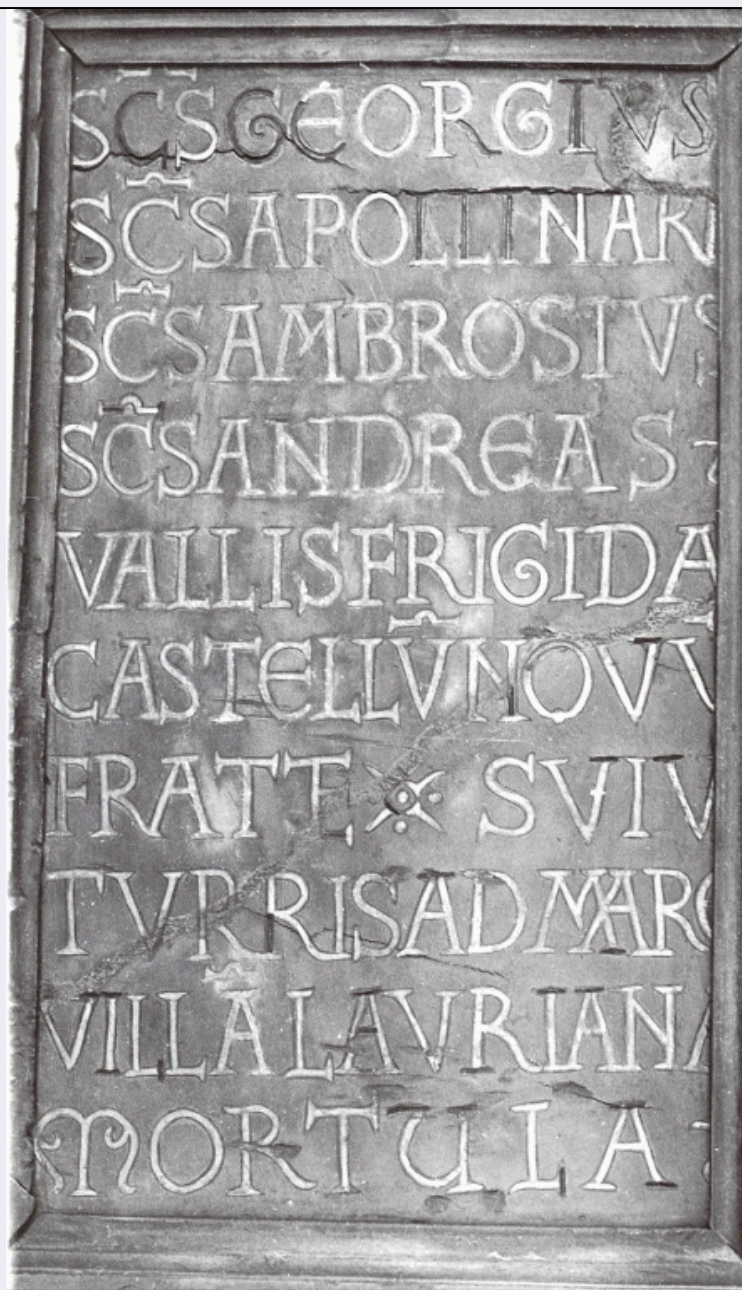 SCS GEORGIVS
SCS APOLLINARI
SCS AMBROSIVS
SCS ANDREAS
VALLIS FRIGIDA
CASTELLV NOVV
FRATTE SVIV
TVRRIS AD MARC
VILLA LAVRIANA
MORTULA